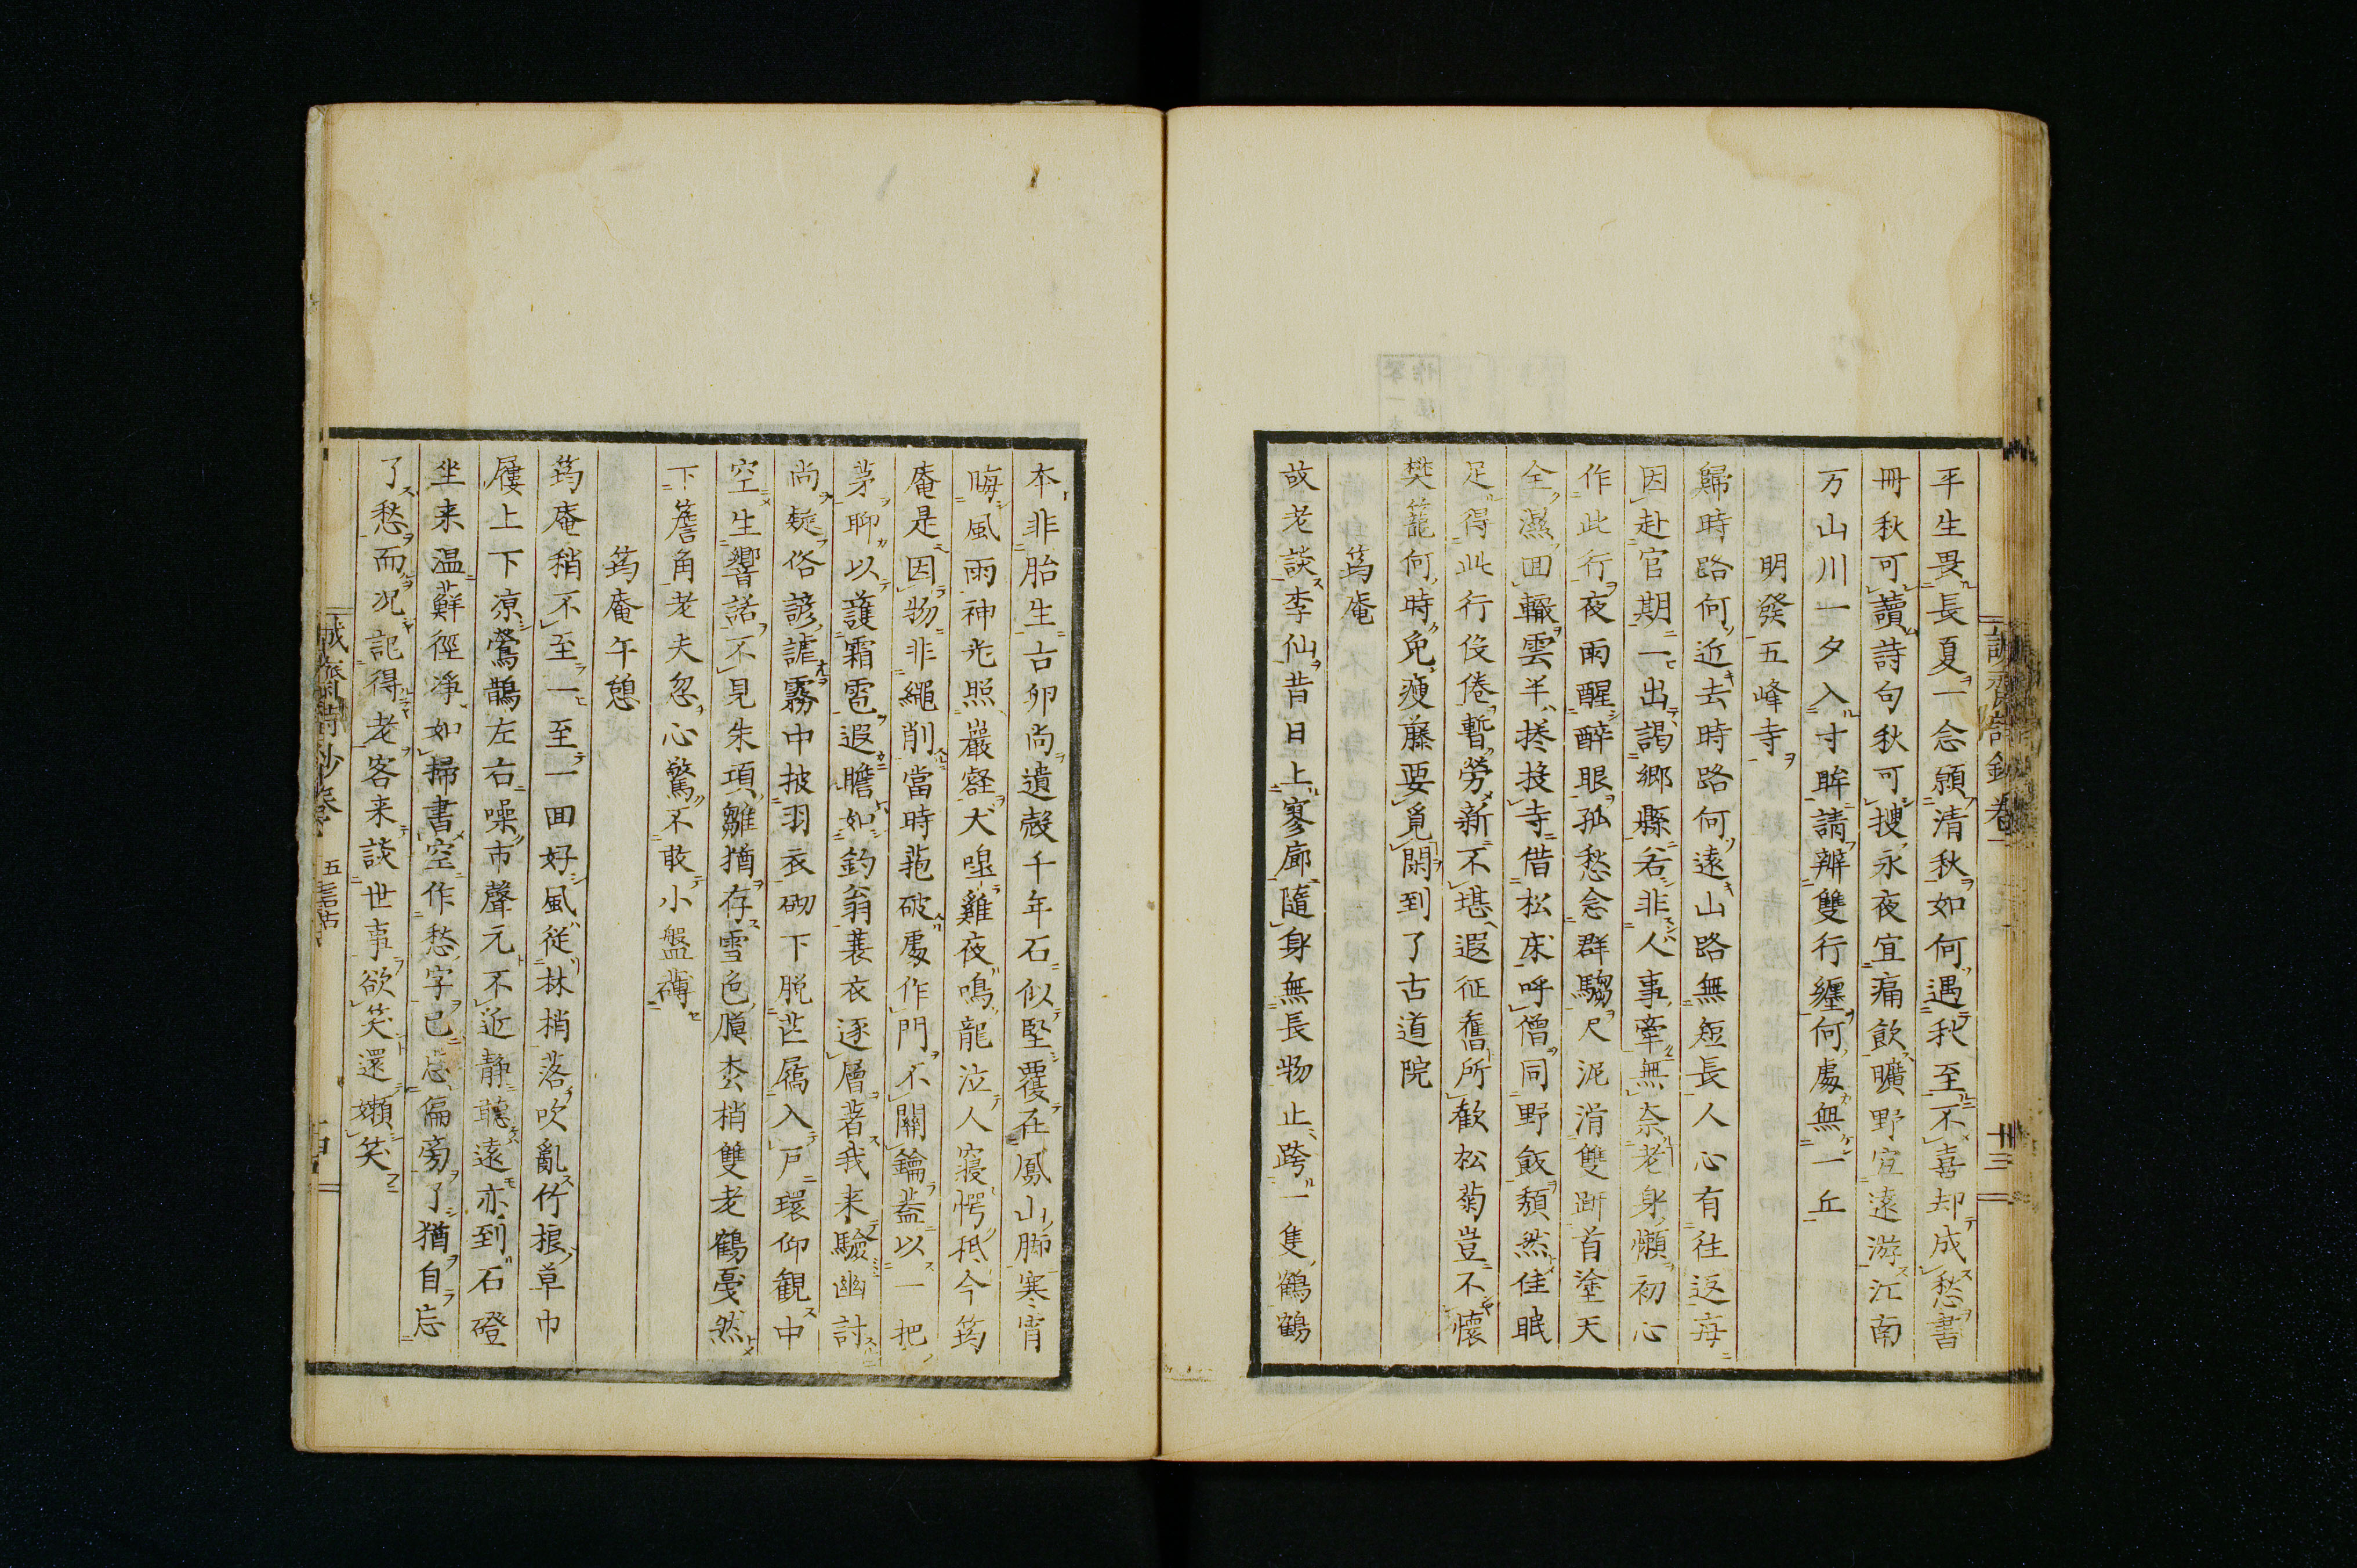 平生畏長夏一念願清秋如何遇秋至不喜却成愁書
冊秋可讀詩句秋可捜永夜宜痛飲曠野宜遠游江南
万山川一夕入寸眸請辨雙行纏何處無一丘
明發五峰寺
歸時路何近去時路何遠山路無短長人心有往返每
因赴官期一出謁郷縣若非人事牽無奈老身懶初心
作此行夜雨醒醉眼孤愁念群騶尺泥滑雙趼首塗天
全濕回轍雲半捲投寺借松床呼僧同野飯頽然佳眠
足得此行役倦暫勞新不堪遐征舊所歡松菊豈不懷
樊籠何時免瘦藤要覓閑到了古道院
筠庵
故老談李仙昔日上寥廓隨身無長物止跨一隻鶴鶴
本非胎生古卵尚遺殼千年石似堅覆在鳳山脚寒宵
晦風雨神光照巖壑犬嘷雞夜鳴龍泣人寢愕秪今筠
庵是因物非繩削當時苞破處作門不關鑰蓋以一把
茅聊以護霜雹遐瞻如釣翁蓑衣逐層著我来驗幽討
尚疑俗諺謔霧中披羽衣砌下脱芒屩入戸環仰觀中
空生響諾不見朱項雛猶存雪色膜杰梢雙老鶴戛然
下簷角老夫忽心驚不敢小盤礴
筠庵午憩
筠庵稍不至一至一回好風従林梢落吹亂竹根草巾
屨上下凉鶯鵲左右噪市聲元不近静聽遠亦到石磴
坐来温蘚徑淨如掃書空作愁字已忘偏旁了猶自忘
了愁而况記得老客来談世事欲笑還嬾笑
誠齋詩鈔卷 十三
誠齋詩鈔卷 五言古 十四